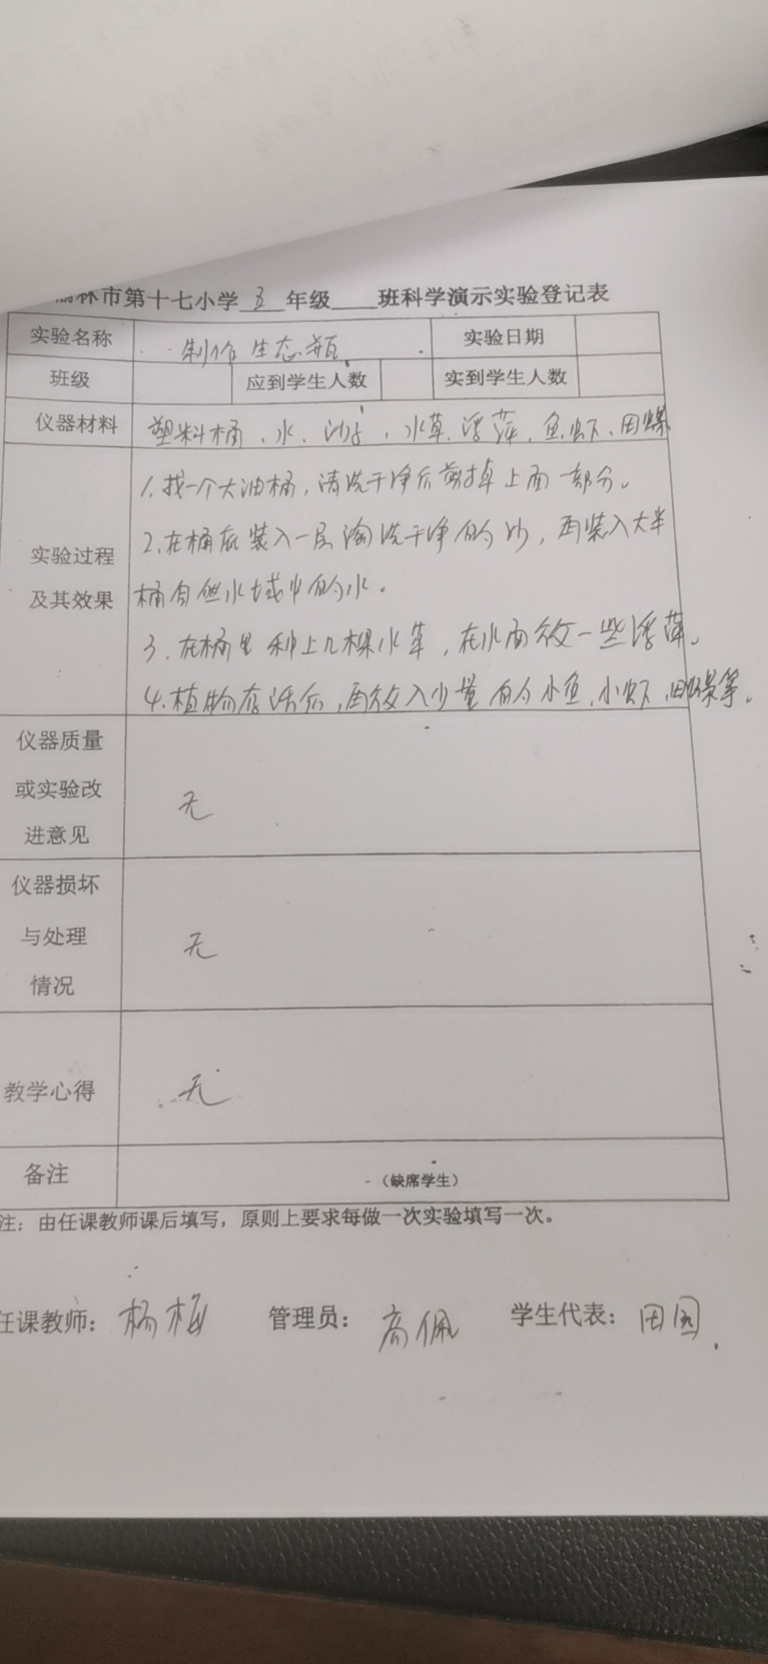 榆林市第十七小学 五 年级____班科学演示实验登记表
实验名称 制作生态瓶 实验日期
班级 应到学生人数 实到学生人数
仪器材料 塑料桶、水、沙子、水草、浮萍、鱼虾、田螺
1.找一个大油桶,清洗干净后剪掉上面一部分。
实验过程 2.在桶底装入一层淘洗干净的沙,再装入大半
及其效果 桶自然水域中的水。
3.在桶里种上几棵水草,在水面放一些浮萍。
4.植物存活后,再放入少量的小鱼、小虾、田螺等。
仪器质量
或实验改
进意见
无
仪器损坏
与处理
情况
无
教学心得 无
备注 (缺席学生)
注:由任课教师课后填写,原则上要求每做一次实验填写一次。
任课教师: 杨梅 管理员: 高佩 学生代表: 田园